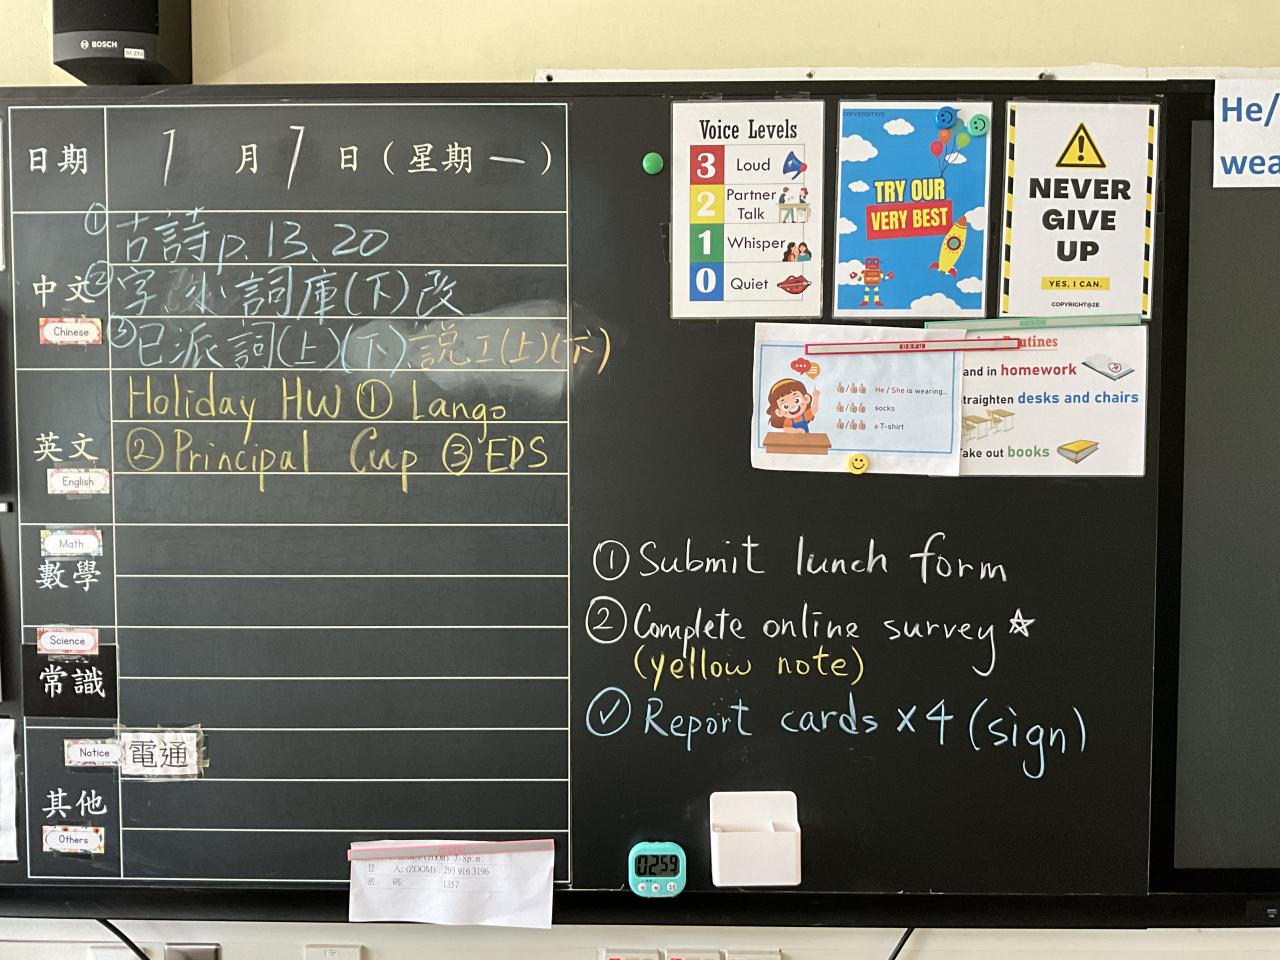 BOSCH
日期 1月7日(星期一)
中文
Chinese
① 古詩p.13、20
② 字 小詞庫(下)改
③ 已派詞(上)(下)、說工(上)(下)
英文
English
Holiday HW ① Lango
② Principal Cup ③ EDS
Math
數學
Science
常識
Notice
電通
其他
Others
(ZOOM) 7-8p.m.
登 入: (ZOOM) 293 916 3196
密 碼: 1357
Voice Levels
3 Loud
2 Partner Talk
1 Whisper
0 Quiet
COPYRIGHT@2E
TRY OUR
VERY BEST
NEVER
GIVE
UP
YES, I CAN.
COPYRIGHT@2E
He/
wea
He / She is wearing...
socks
a T-shirt
DEFU
Routines
and in homework
traighten desks and chairs
Take out books
① Submit lunch form
② Complete online survey ☆
(yellow note)
✓ Report cards x4 (sign)
0259